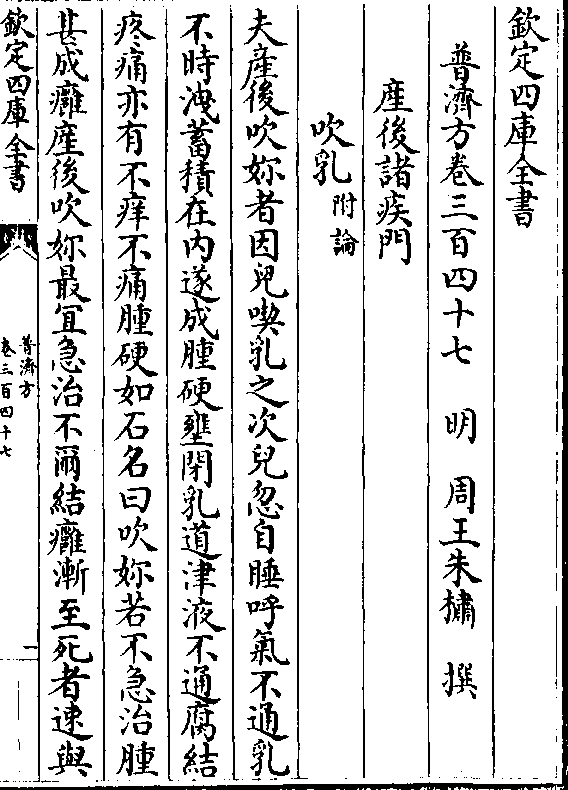 欽定四庫全書
普濟方卷三百四十七　明　周王朱橚　撰
產後諸疾門
吹乳附論
夫產後吹妳者因兒喫乳之次兒忽自睡呼氣不通乳
不時洩蓄積在內遂成腫硬壅閉乳道津液不通腐結
疼痛亦有不痒不痛腫硬如石名曰吹妳若不急治腫
甚成癰產後吹妳最宜急治不爾結癰漸至死者速與
欽定四庫全書
普濟方
卷三百四十七
一